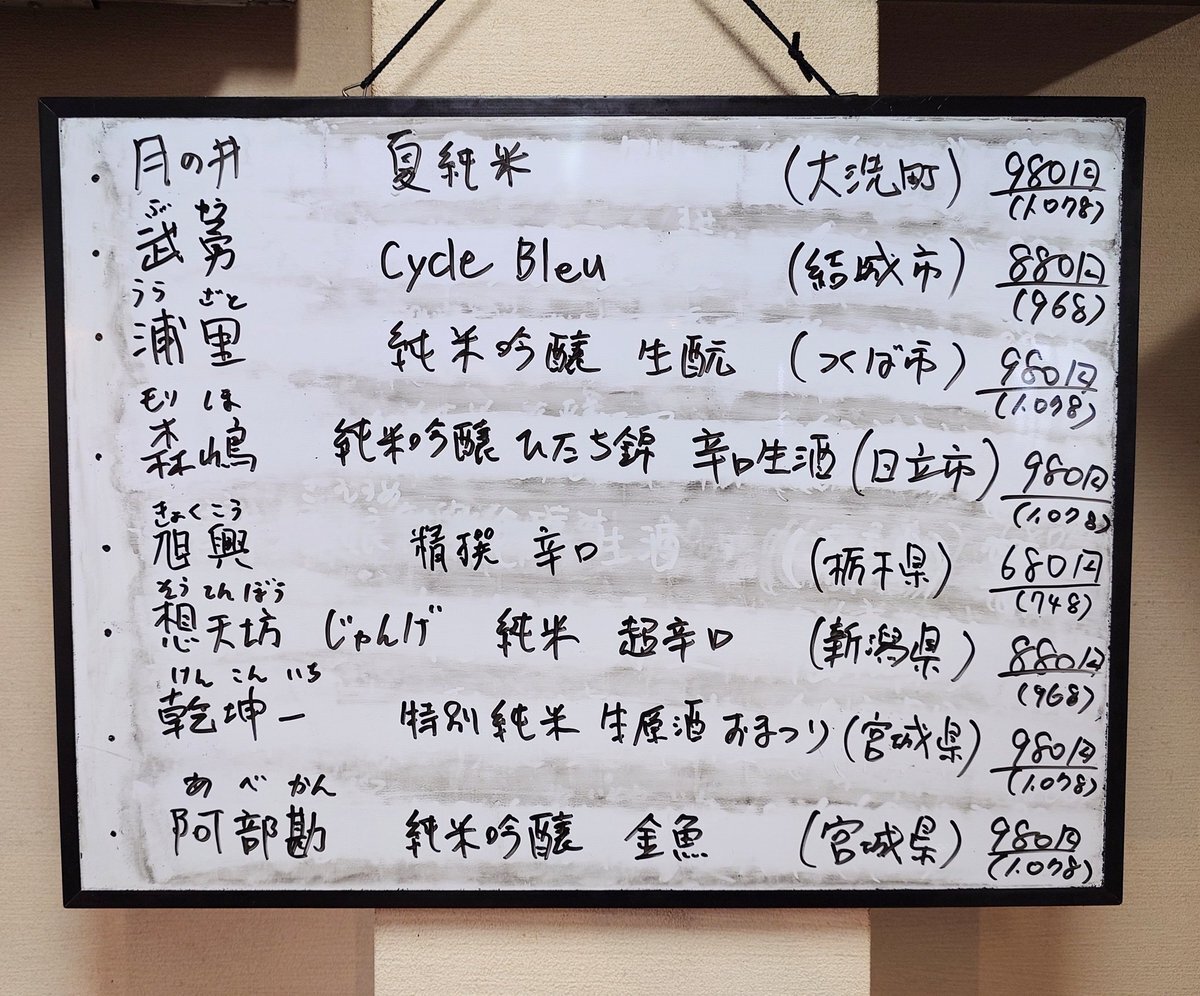 ・月の井 夏純米 (大洗町) 980円
(1.078)
ぶ ゆう
・武勇 Cycle Bleu (結城市) 880円
(968)
うら ざと
・浦里 純米吟醸 生酛 (つくば市) 980円
(1.078)
もり しま
・森嶋 純米吟醸 ひたち錦 辛口生酒 (日立市) 980円
(1.078)
きょくこう
・旭興 精撰 辛口 (栃木県) 680円
(748)
そう てんぼう
・想天坊 じゃんげ 純米 超辛口 (新潟県) 880円
(968)
けん こん いち
・乾坤一 特別純米 生原酒 おまつり (宮城県) 980円
(1.078)
あ べ かん
・阿部勘 純米吟醸 金魚 (宮城県) 980円
(1.078)